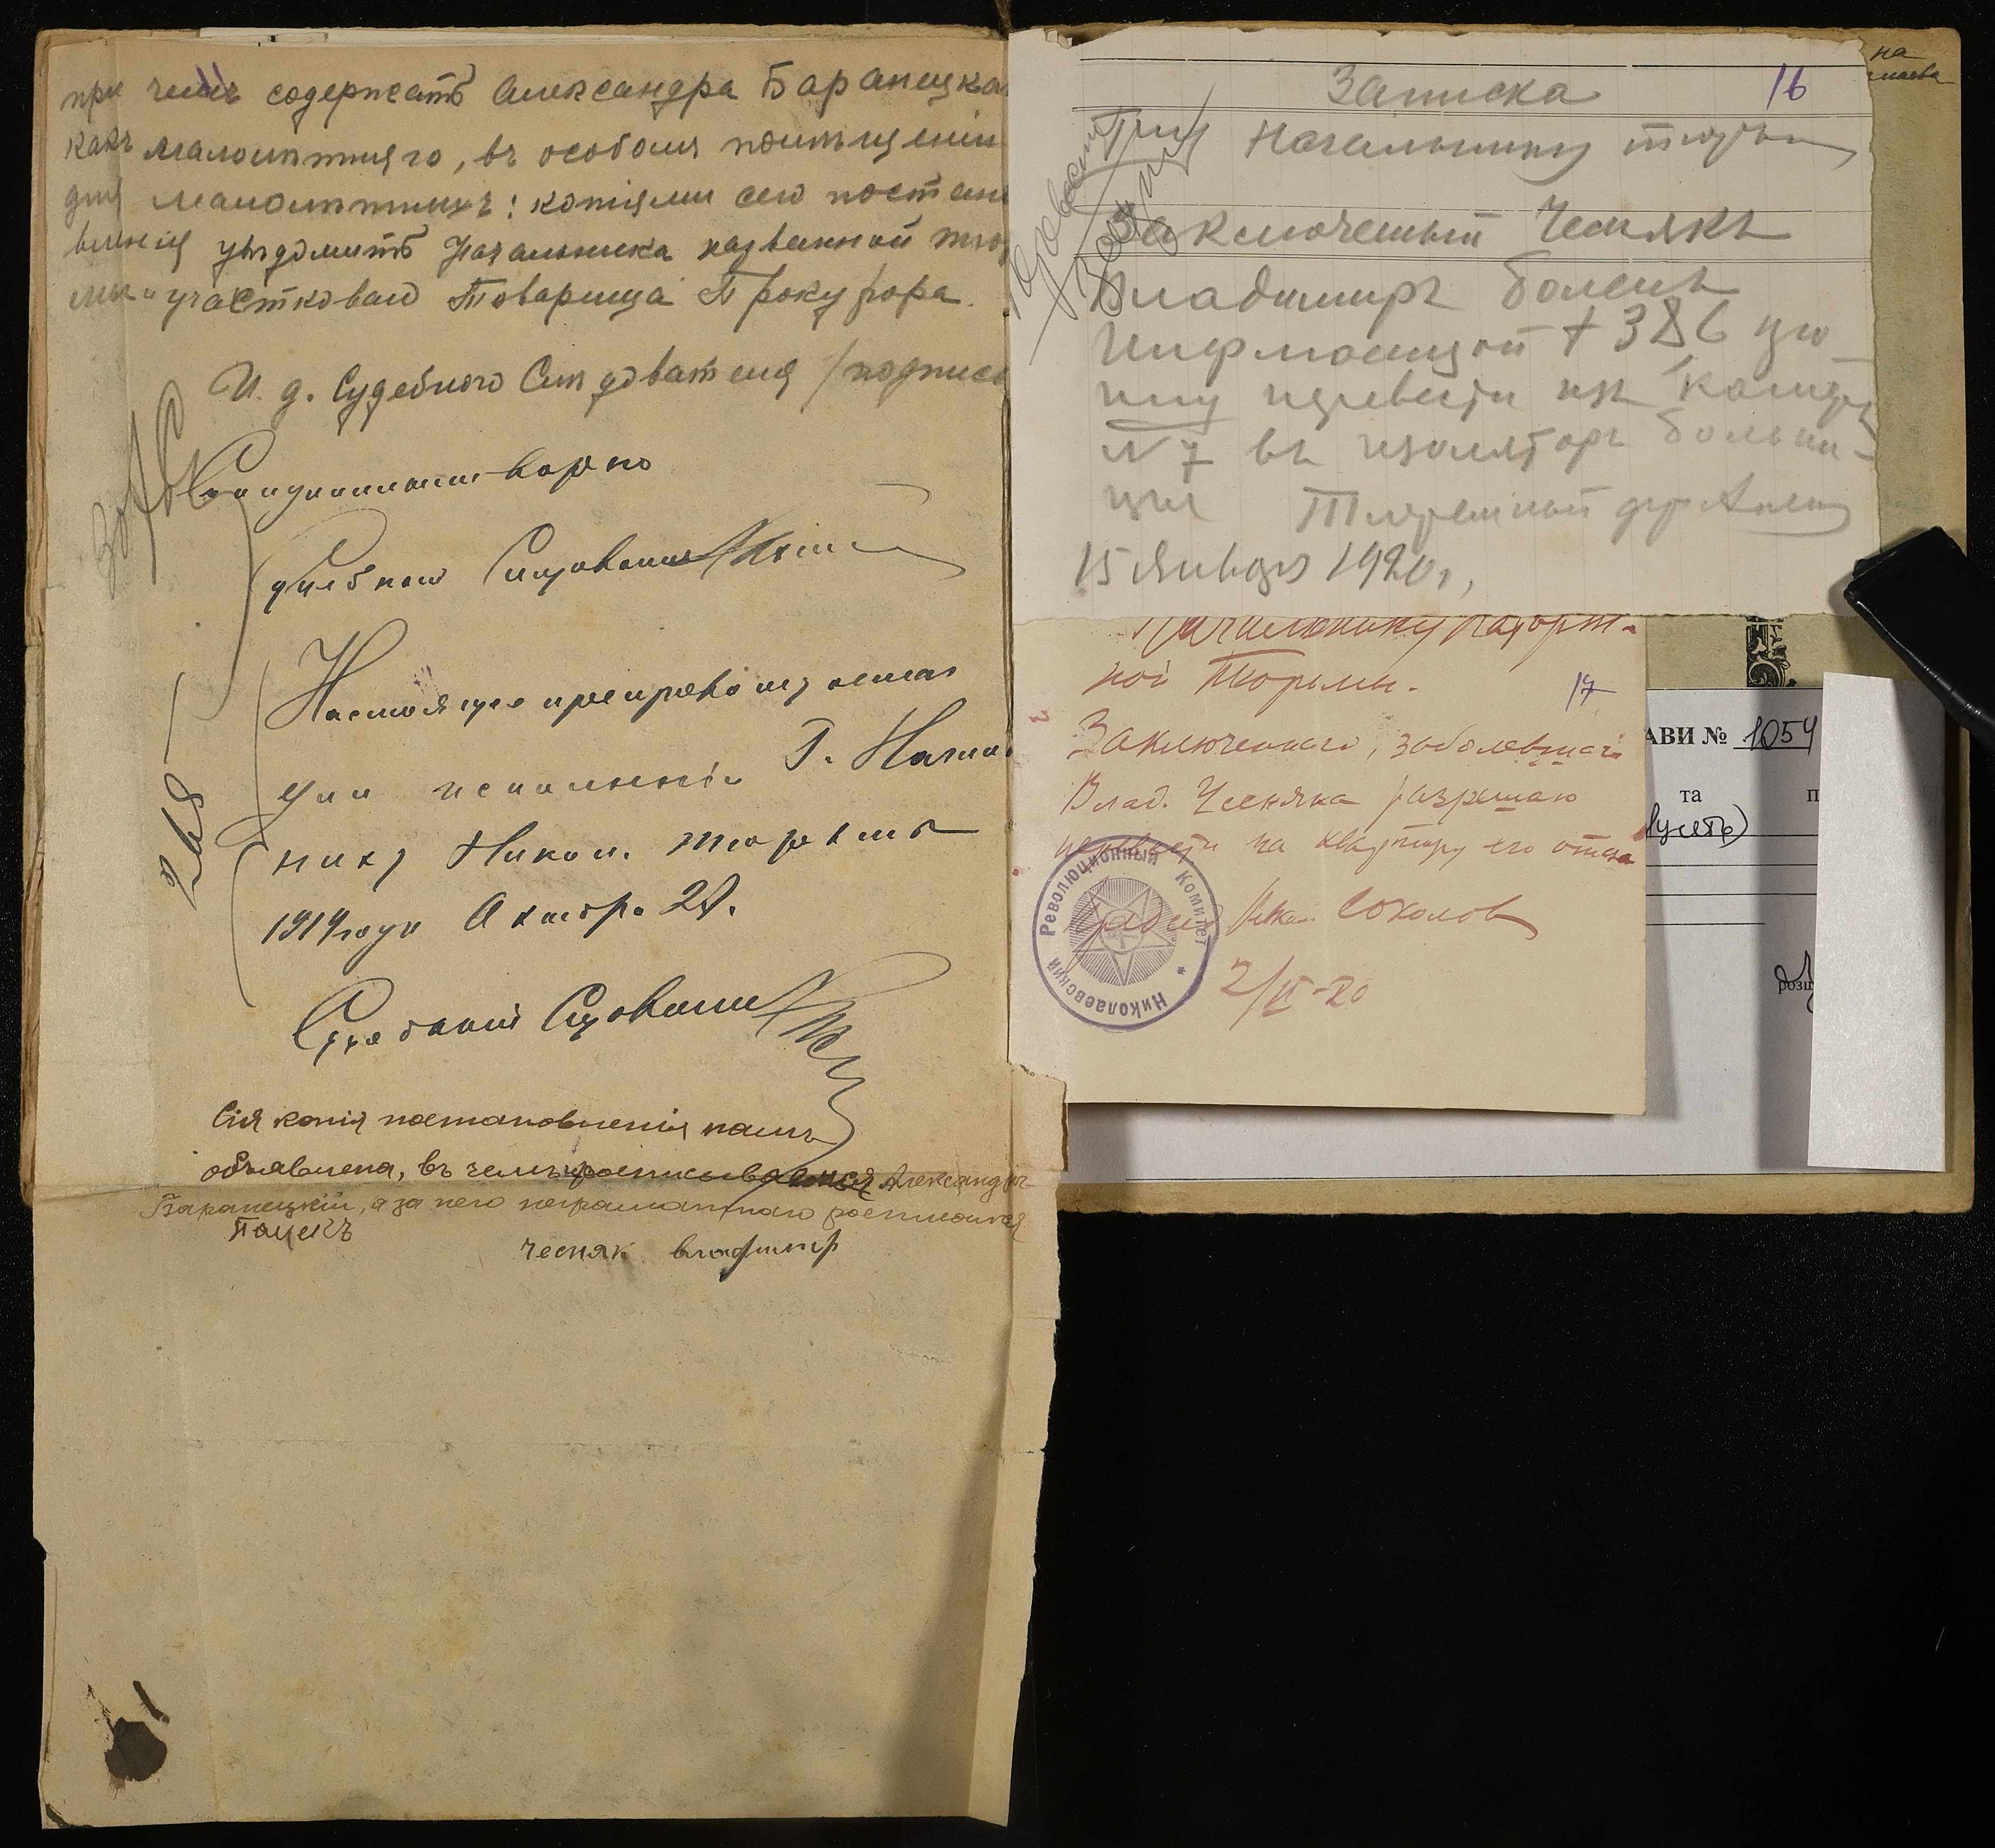 при чемъ содержать Александра Баранецка
какъ малолѣтняго, въ особомъ помѣщеніи
для малолѣтнихъ: копіями сего постано
вленія увѣдомить Начальника названной тюр
мы и участковаго Товарища Прокурора.
И. д. Судебнаго Слѣдователя /подпись
Съ подлиннымъ вѣрно
Судебный Слѣдователь
Настоящее препровождаю
для исполненія Г. Началь
нику Никол. тюрьмы
1919 года Октябр. 28.
Судебный Слѣдователь
Сія копія постановленія намъ
объявлена, въ чемъ росписываемся Александръ
Баранецкій, а за него неграмотнаго росписался
Пацекъ
Чесняк Владимир
16
Записка
Начальнику тюрьмы
Заключенный Чеснякъ
Владимиръ боленъ
Инфлюэнцой + 38,6 про
шу перевести изъ камеры
N 7 въ изоляторъ больни-
цы Тюремный
15 Января 1920 г.
Начальнику каторж-
ной Тюрьмы.
17
Заключенного, заболевшаго
Влад. Чесняка разрешаю
перевести на квартиру его отца
Соколов
2/II-20
Николаевский Революционный Комитет *
на
АВИ № 1054
та
п